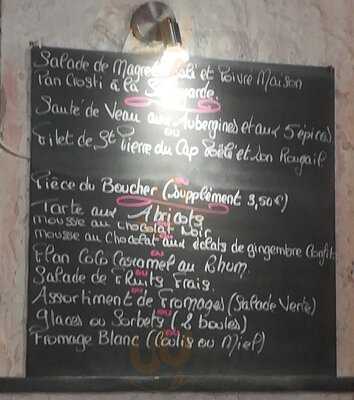 Salade de Magret et Poivre Maison
Pan Crosti à la
Sauté de Veau aux Aubergines et aux 5 épices
ou
Filet de St Pierre du Cap Poêlé et son Rougail
Pièce du Boucher (Supplément 3,50€)
Tarte aux Abricots
mousse au chocolat Noir
mousse au Chocolat aux éclats de gingembre Confit
Flan Coco Caramel au Rhum.
Salade de Fruits Frais.
Assortiment de Fromages (Salade Verte)
Glaces ou Sorbets (2 boules)
Fromage Blanc (Coulis ou Miel)